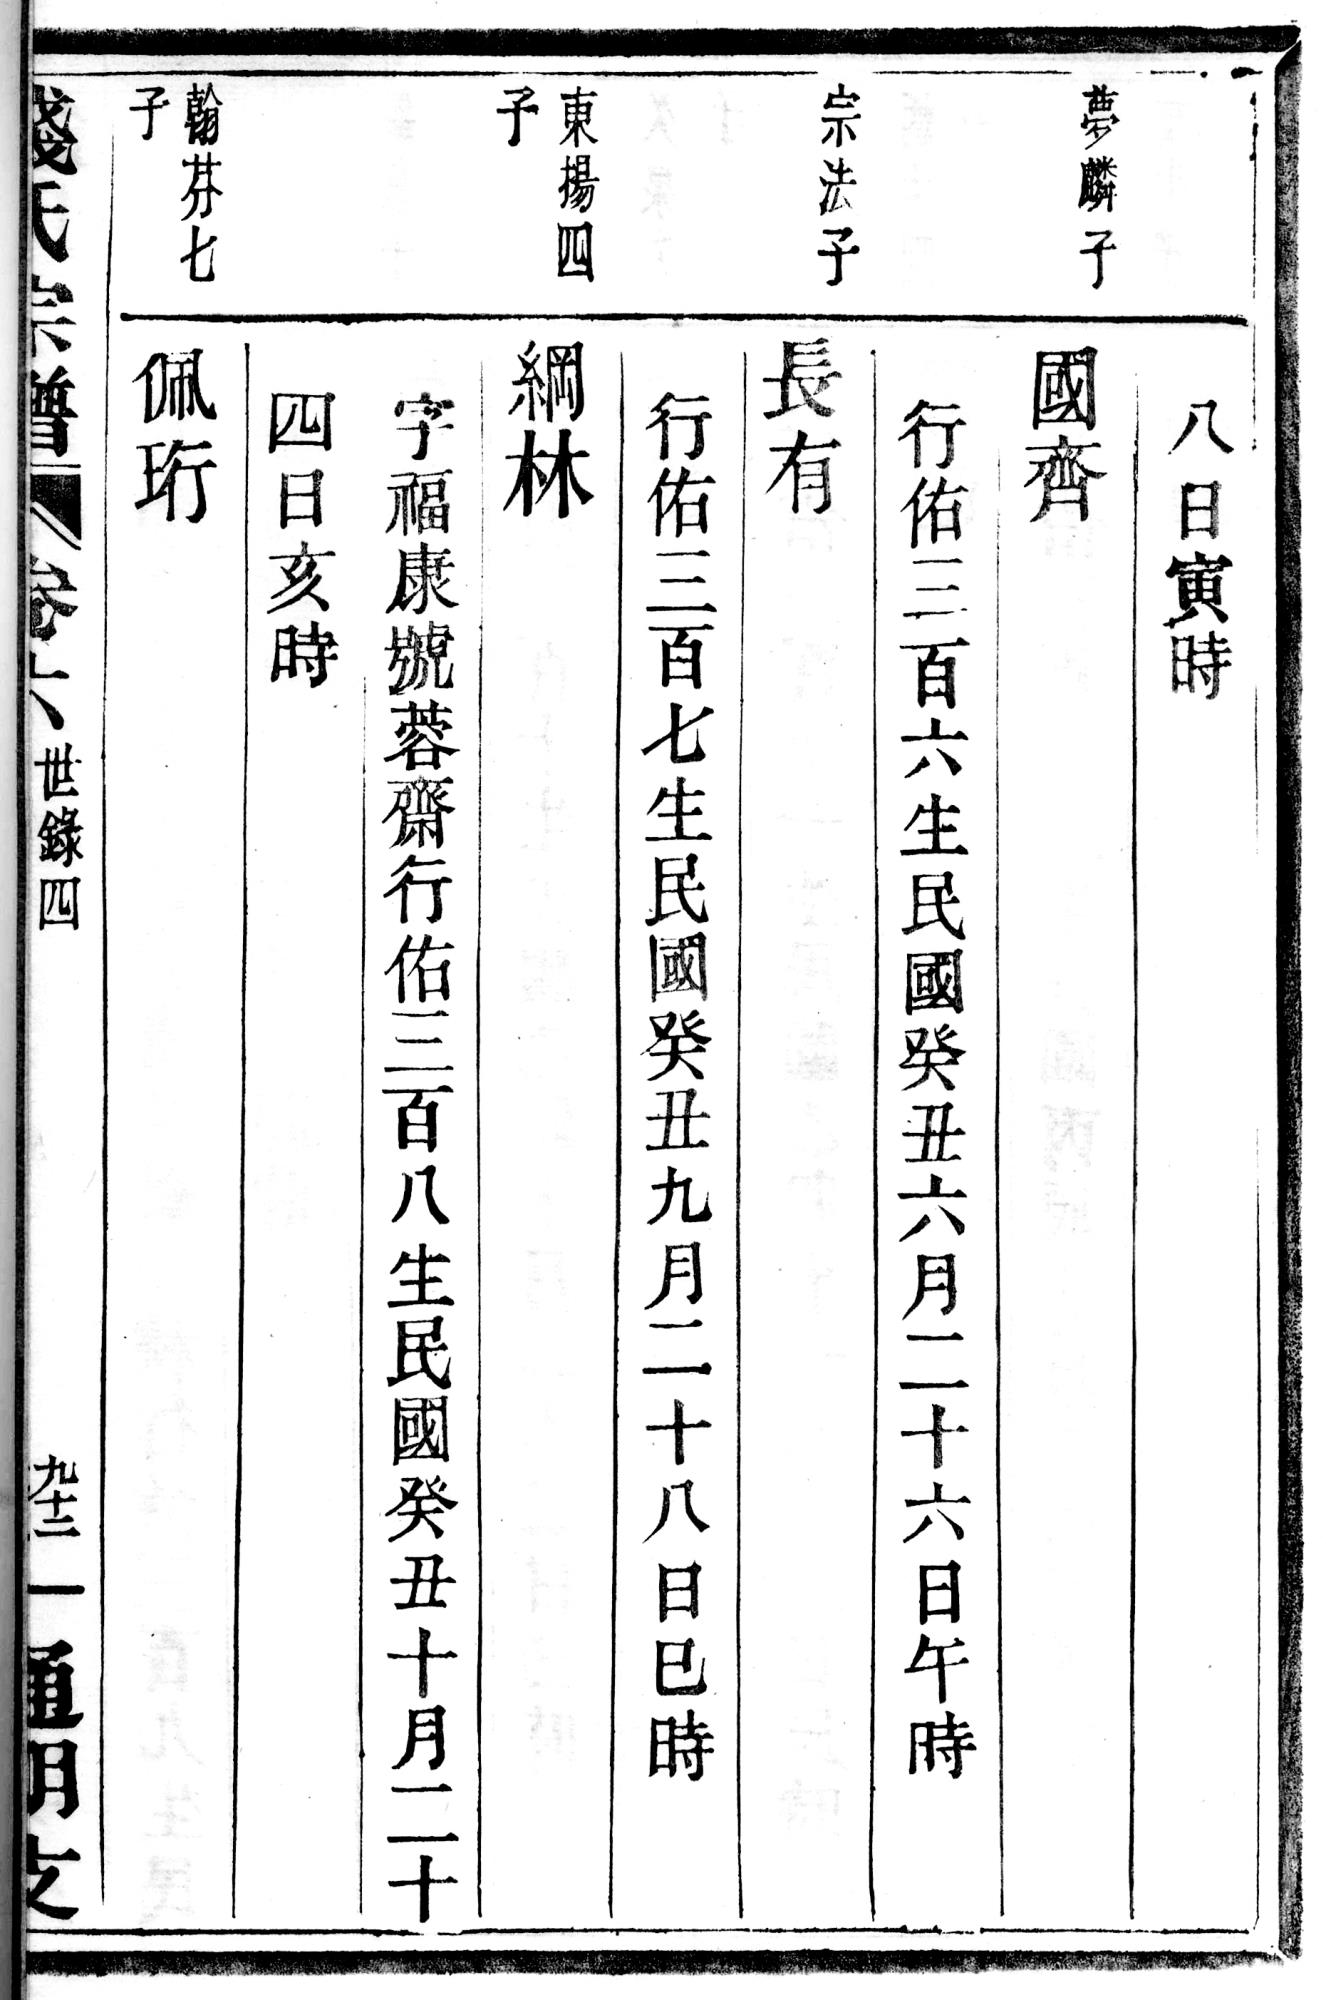 八日寅時
夢麟子
國齊
行佑三百六生民國癸丑六月二十六日午時
宗法子
長有
行佑三百七生民國癸丑九月二十八日巳時
東揚四
子
綱林
字福康號蓉齋行佑三百八生民國癸丑十月二十
四日亥時
翰芬七
子
佩珩
錢氏宗譜
卷六
世錄四
九十二
通明支